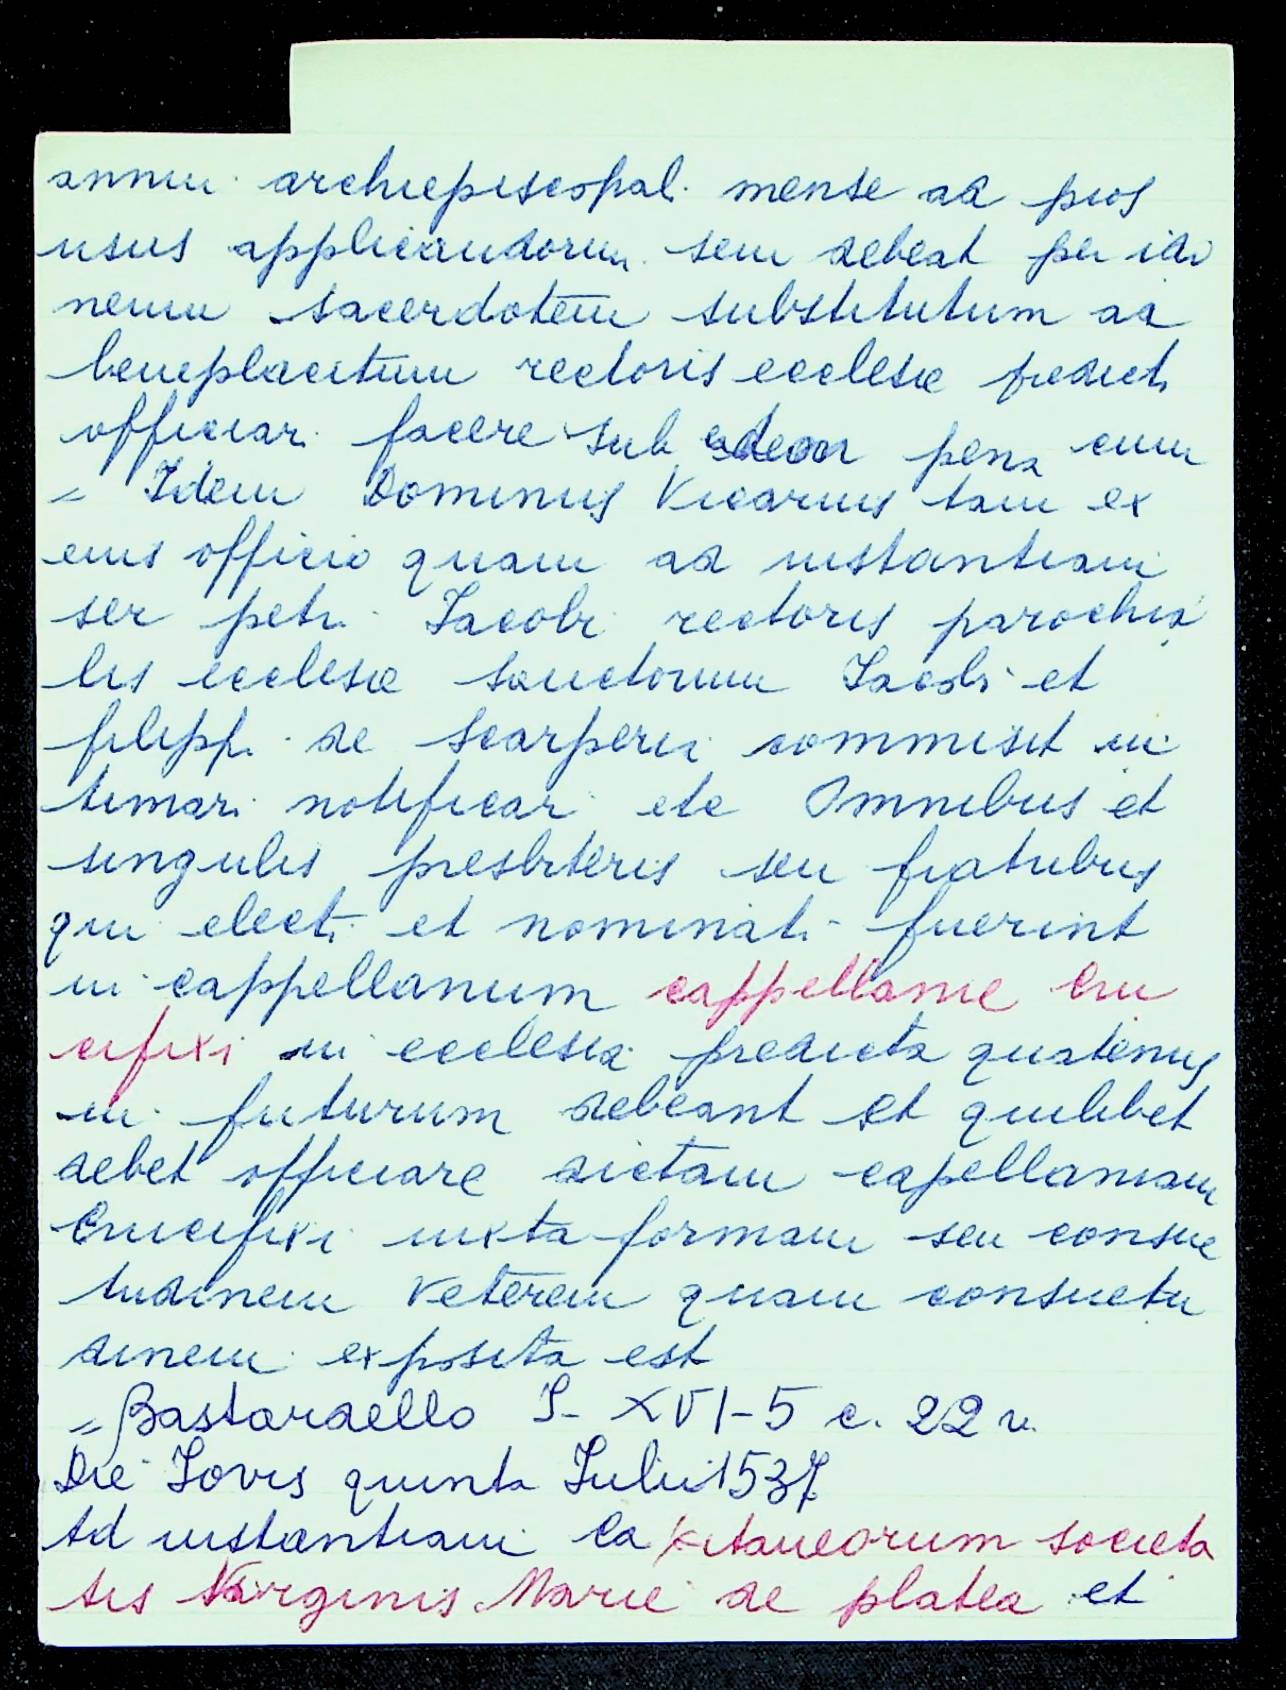 annui archiepiscopal. mense ad pios
usus applicandorum seu debeat per ido
neum sacerdotem substitutum ad
beneplacitum rectoris ecclesie predict.
officiar. facere sub eadem pena cum
= Idem Dominus Vicarius tam ex
eius officio quam ad instantiam
ser petri Iacobi rectoris parochia
lis ecclesie sanctorum Iacobi et
filippi de scarperia commisit in
timari notificari etc Omnibus et
singulis presbiteris seu fratribus
qui electi et nominati fuerint
in cappellanum cappellanie Cru
cifixi in ecclesia predicta quatenus
in futurum debeant et quilibet
debet officiare dictam capellaniam
Crucifixi iuxta formam seu consue
tudinem veterem quam consuetu
dinem exposita est
= Bastardello I- XVI-5 c. 22 v.
Die Iovis quinta Iulii 1537
Ad instantiam Capitaneorum societa
tis Virginis Marie de platea et